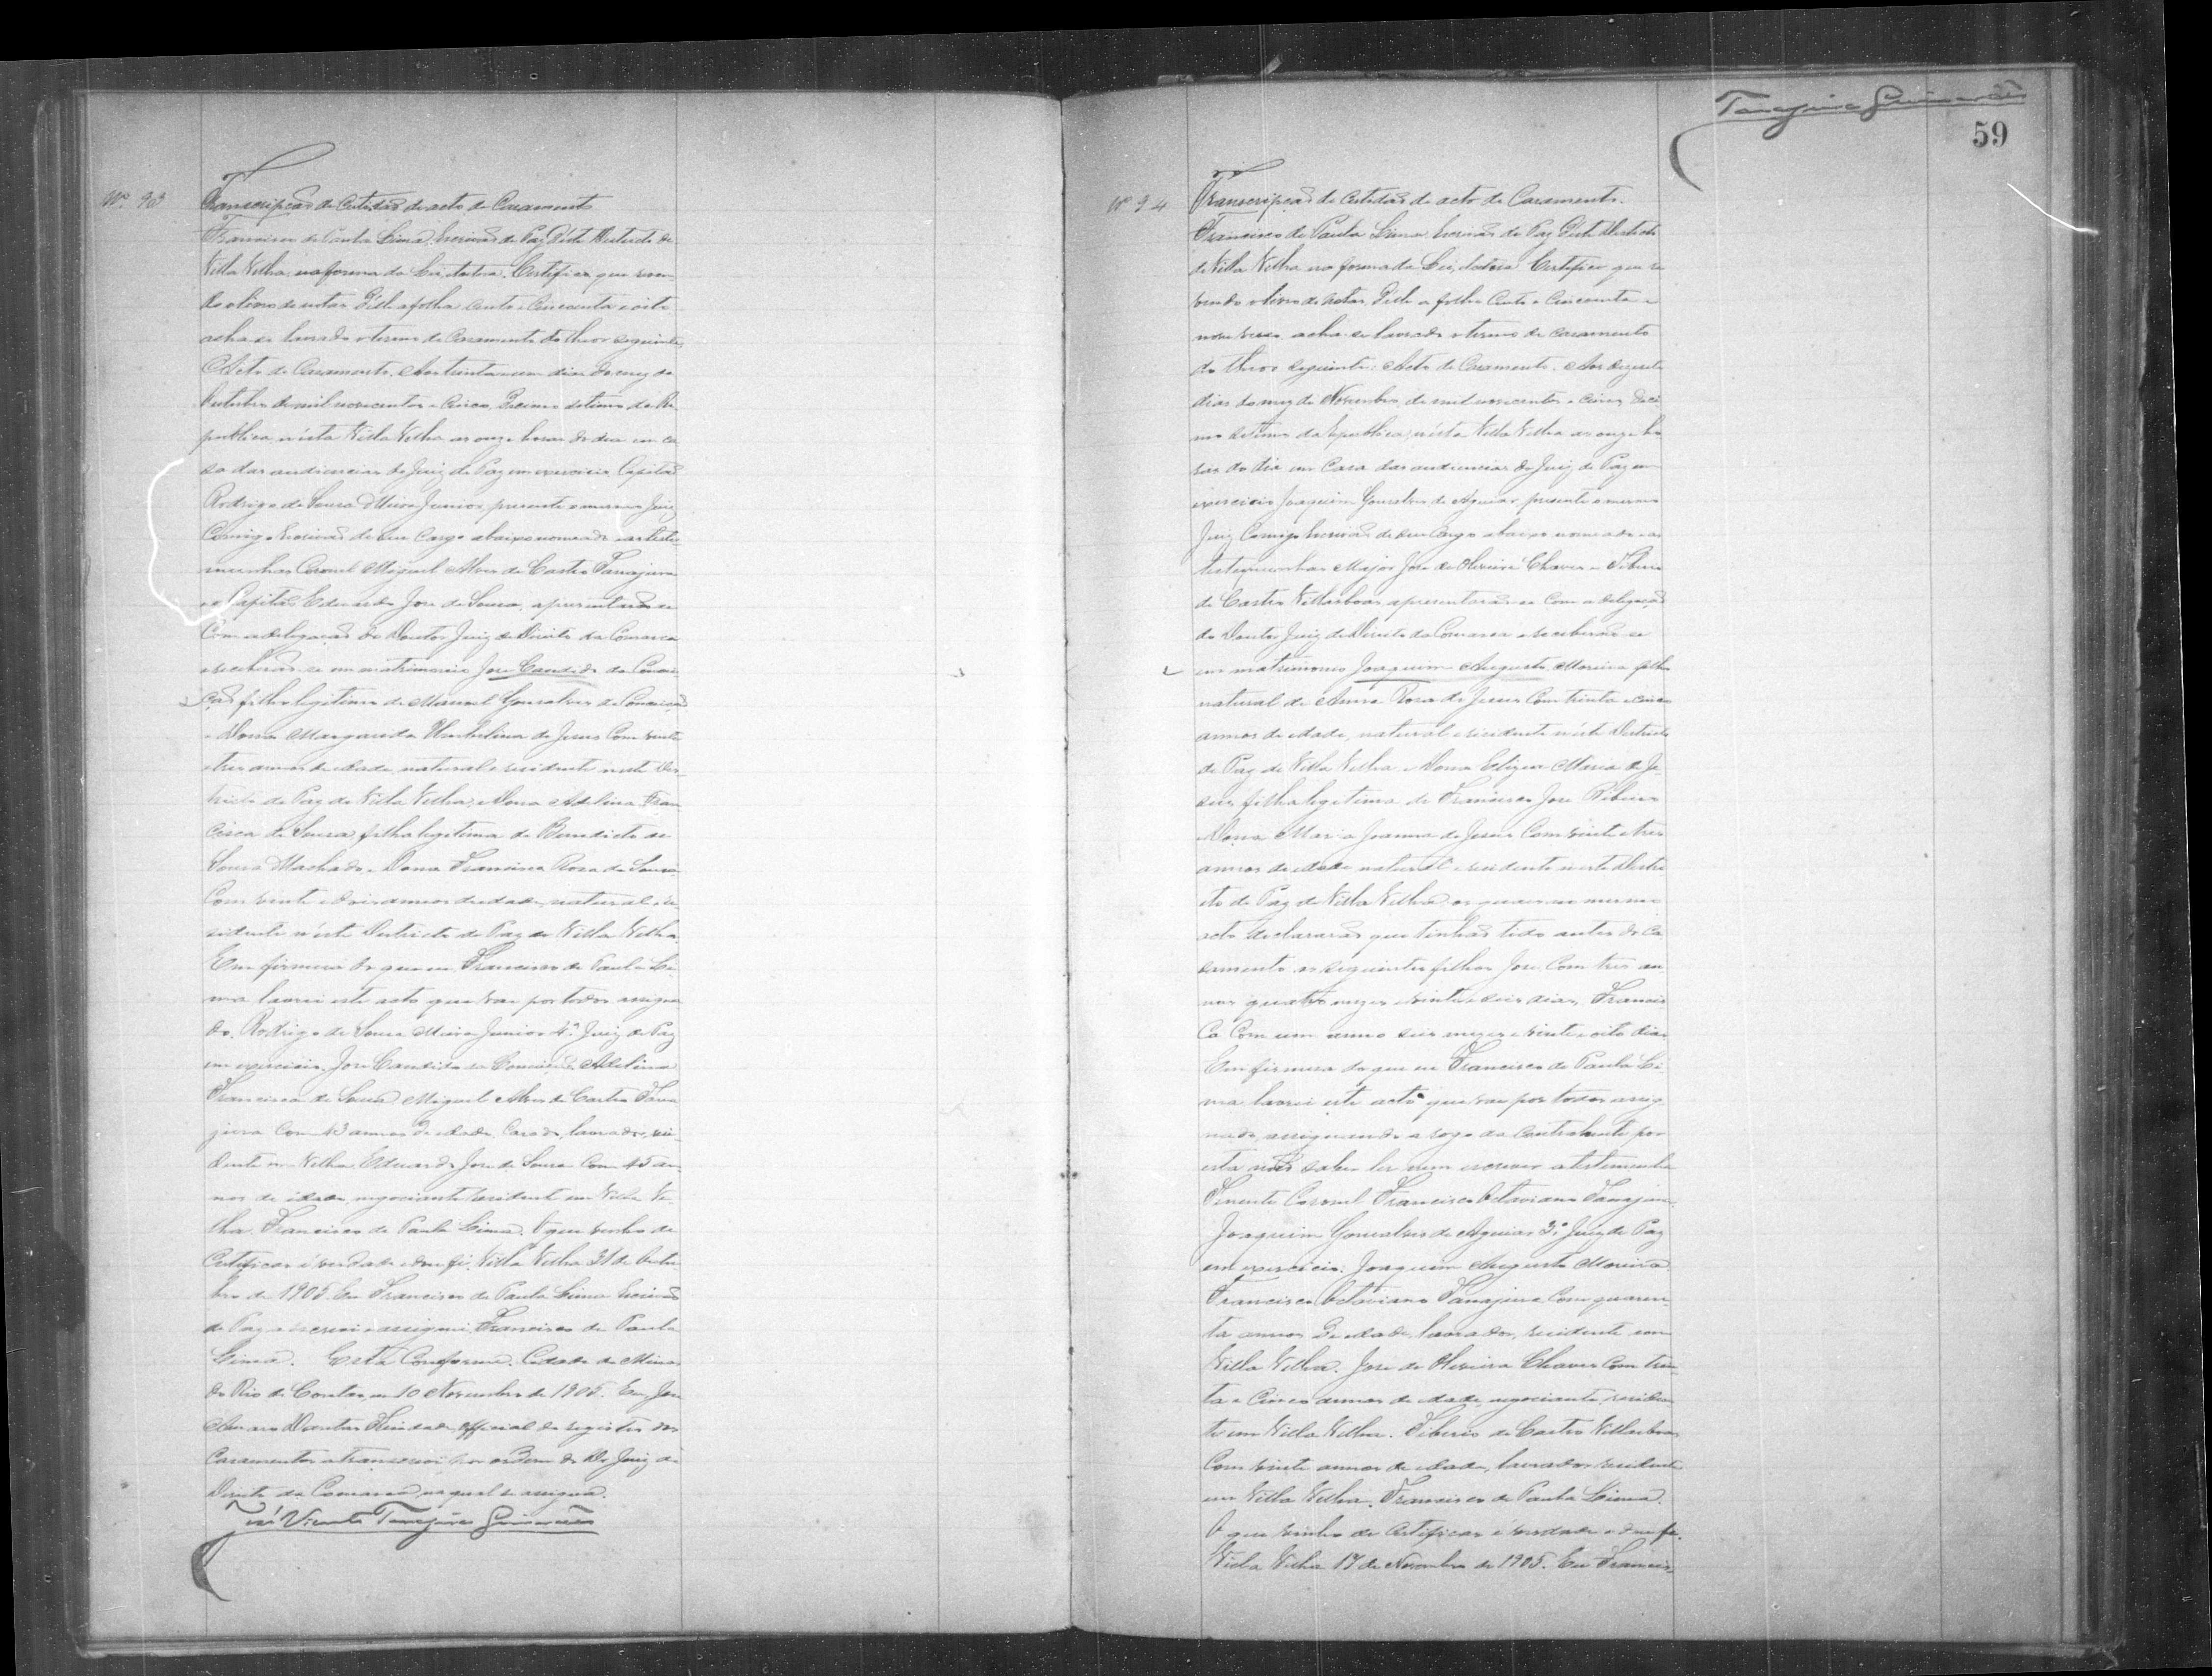 Nº 93
Transcripção de Certidão de acto de Casamento
Francisco de Paula Lima, Escrivão de Paz d'este Districto de
Villa Velha, na forma da Lei, etcetra. Certifico que reven-
do o livro de notas d'elle a folha cento e cincoenta e oito
acha-se lavrado o termo de Casamento do theor seguinte;
Acto de Casamento. Aos trinta e um dias do mez de
Outubro de mil novecentos e cinco, decimo setimo da Re
publica n'esta Villa Velha as onze horas do dia em ca
sa das audiencias do Juiz de Paz em exercicio Capitão
Rodrigo de Sousa Meira Junior, presente o mesmo Juiz
Comigo Escrivão de seu Cargo abaixo nomeado e as teste-
munhas Coronel Miguel Alves de Castro Tanajura
e o Capitão Eduardo Jose de Sousa, apresentarão-se
Com a delegação do Doutor Juiz de Direito da Comarca
e receberão-se em matrimonio Jose Candido da Concei
ção filho legitimo de Manoel Gonsalves da Conceição
e Dona Margarida Umbelina de Jesus Com vinte
e tres annos de idade, natural e residente neste Dis-
tricto de Paz de Villa Velha, e Dona Adelina Fran
cisca de Sousa, filha legitima de Benedicto de
Sousa Machado e Dona Francisca Rosa de Sousa
Com vinte e dois annos de idade, natural e re-
sidente n'este Districto de Paz de Villa Velha.
Em firmeza do que eu Francisco de Paula Li-
ma lavrei este acto que vae por todos assigna
do. Rodrigo de Sousa Meira Junior 4º Juiz de Paz
em exercicio. Jose Candido da Conceição. Adelina
Francisca de Sousa. Miguel Alves de Castro Tana
jura Com 43 annos de idade, Casado, lavrador, resi-
dente em Velha. Eduardo Jose de Sousa Com 45 an-
nos de idade, negociante residente em Villa Ve-
lha. Francisco de Paula Lima. O que venho de
Certificar é verdade e dou fé. Villa Velha 31 de Outu
bro de 1905. Eu Francisco de Paula Lima Escrivão
de Paz o escrevi e assignei Francisco de Paula
Lima. Está Conforme. Cidade de Minas
do Rio de Contas, em 10 Novembro de 1905. Eu, Jose
Dantas Trindade official do registro dos
Casamentos a transcrevi por ordem do Dr Juiz de
Direito da Comarca, na qual se assigna.
José Vicente Tanajura Guimarães
Tanajura Guimarães
59
Nº 94
Transcripção de Certidão de acto de Casamento.
Francisco de Paula Lima, Escrivão de Paz d'este Districto
de Villa Velha na forma da Lei, etcetra Certifico que re
vendo o livro de notas d'elle a folha Cento e Cincoenta e
nove verso acha-se lavrado o termo de casamento
do theor seguinte: Acto de Casamento. Aos dezesete
dias do mez de Novembro de mil novecentos e cinco, deci
mo setimo da Republica, n'esta Villa Velha as onze ho
ras do dia em Casa das audiencias do Juiz de Paz em
exercicio Joaquim Gonsalves de Aguiar, presente o mesmo
Juiz Comigo Escrivão de seu Cargo abaixo nomeado e as
testemunhas Major Jose de Oliveira Chaves e Tiberio
de Castro Villasboas apresentarão-se Com a delegação
do Doutor Juiz de Direito da Comarca e receberão-se
em matrimonio Joaquim Augusto Moreira filho
natural de Anna Rosa de Jesus Com trinta e cinco
annos de idade, natural e residente n'este Districto
de Paz de Villa Velha e Dona Maria de Je
sus, filha legitima de Francisco Jose Ribeiro
e Dona Maria Joanna de Jesus Com vinte e tres
annos de idade natural e residente neste Distri
cto de Paz de Villa Velha, os quaes no mesmo
acto declararão que tinhão tido antes do Ca
samento os seguintes filhos Jose, Com tres an
nos quatro mezes e vinte e seis dias, Francis
Ca Com um anno seis mezes e vinte e oito dias
Em firmeza do que eu Francisco de Paula Li
ma, lavrei este acto que vae por todos assig
nado, assignando a rogo da Contrahente por
esta não saber ler nem escrever a testemunha
Tenente Coronel Francisco Octaviano Tanajura.
Joaquim Gonsalves de Aguiar 3º Juiz de Paz
em exercicio. Joaquim Augusto Moreira.
Francisco Octaviano Tanajura Com quaren-
ta annos de idade, lavrador, residente em
Villa Velha. Jose de Oliveira Chaves Com trin-
ta e Cinco annos de idade, negociante, residen
te em Villa Velha. Tiberio de Castro Villasboas
Com vinte annos de idade, lavrador residente
em Villa Velha. Francisco de Paula Lima.
O que venho de Certificar é verdade e dou fé.
Villa Velha 17 de Novembro de 1905. Eu Francis-